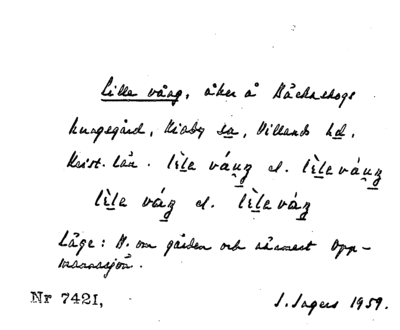 Lille vång, åker å Bäckaskogs
kungsgård, Kiaby sn, Villands hd,
Krist. län. lìle váŋ el. lìleváŋ
lìle váŋ el. lìleváŋ
Läge: N. om gården och närmast Opp-
mannasjön.
Nr 7421, I. Ingers 1959.